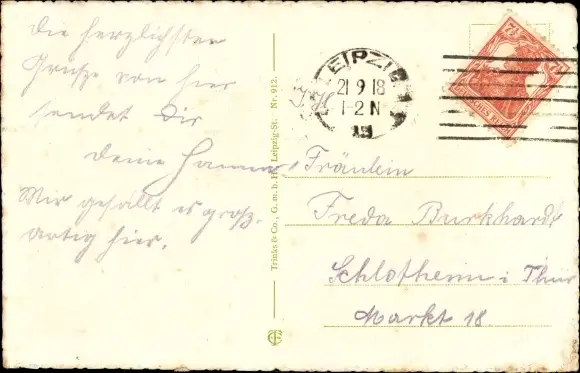 Die herzlichsten
Grüße von hier
sendet Dir
Deine Hanna
Mir gefällt es groß-
artig hier.
Trinks & Co., G. m. b. H., Leipzig-St. Nr. 912.
LEIPZIG
21 9 18
1-2 N
7½ 7½
DEUTSCHES REICH
Fräulein
Freda Burkhardt
Schlotheim i Thür
Markt 18.